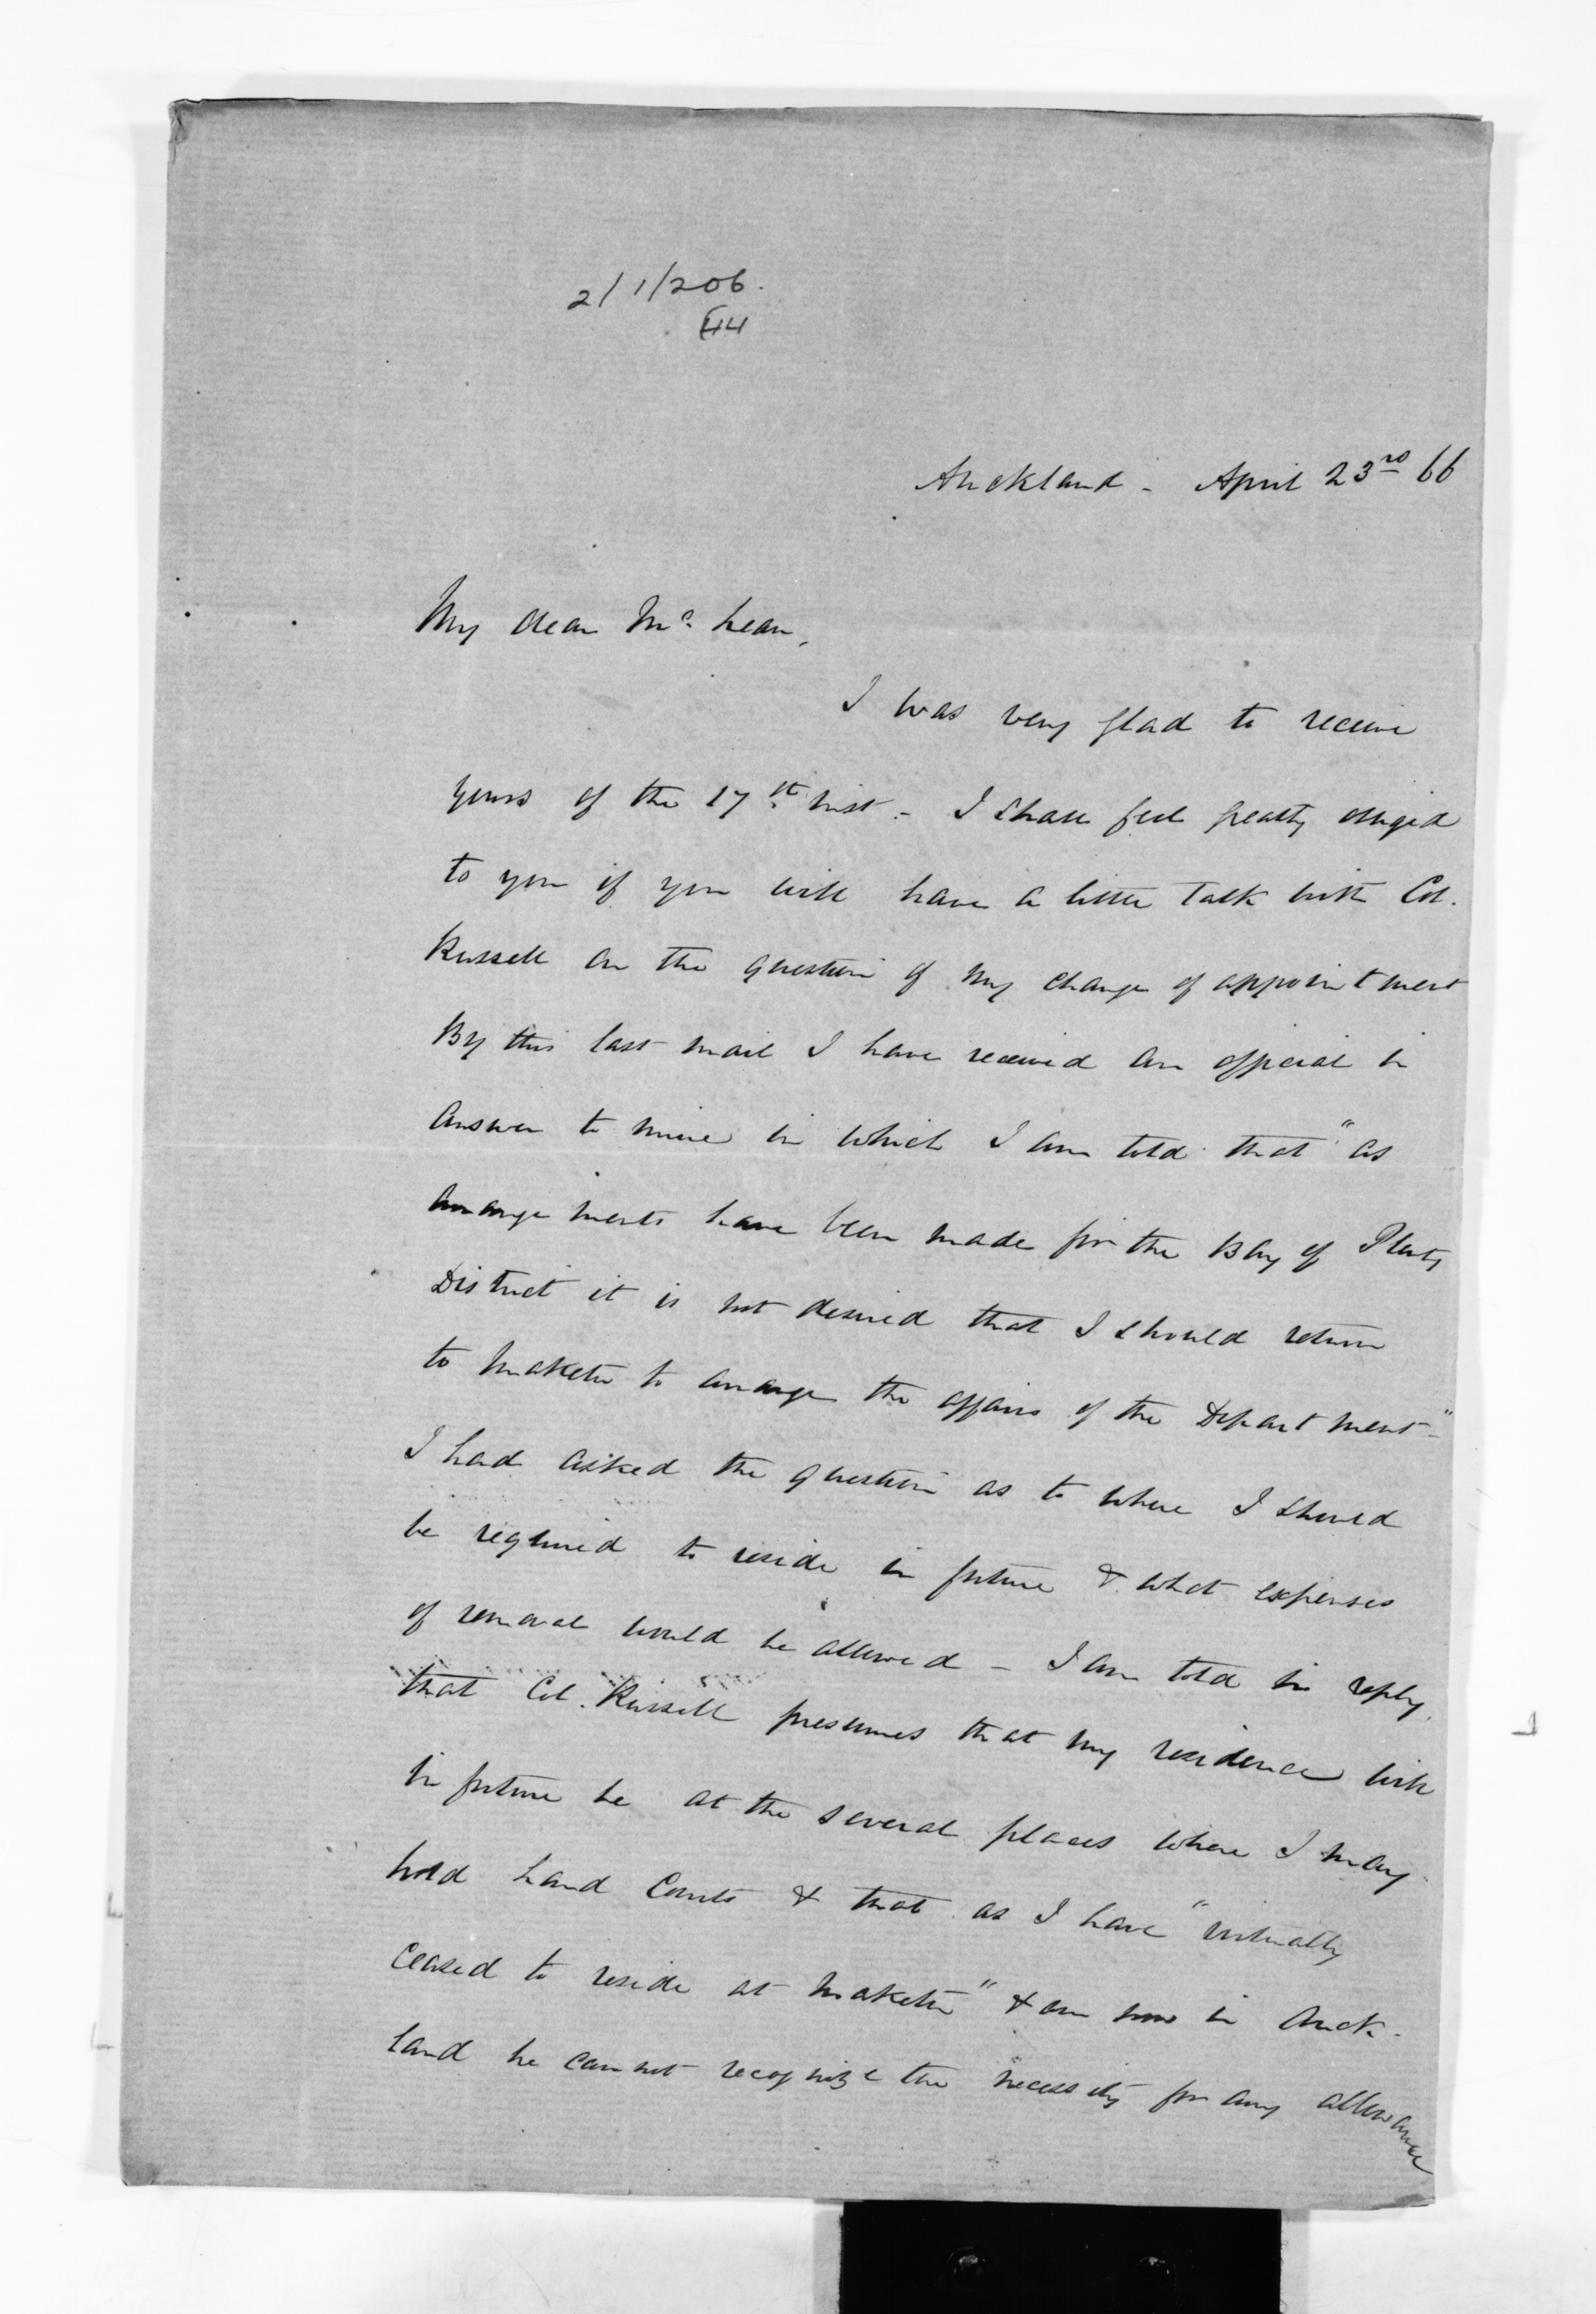 2/1/206.
44
Auckland - April 23rd 66
My dear Mc. Lean,
I was very glad to receive
yours of the 17th inst - I shall feel greatly obliged
to you if you will have a little talk with Col.
Russell on the question of my change of appointment
By this last mail I have received an official in
answer to mine in which I am told that "as
arrangements have been made for the Bay of Plenty
District it is not desired that I should return
to Maketu to arrange the affairs of the Department"-
I had asked the question as to where I should
be required to reside in future & what expenses
of removal would be allowed - I am told in reply
that Col. Russell presumes that my residence will
in future be at the several places where I may
hold Land Courts & that as I have "virtually
ceased to reside at Maketu" & am now in Auck-
land he cannot recognize the necessity for any allowance